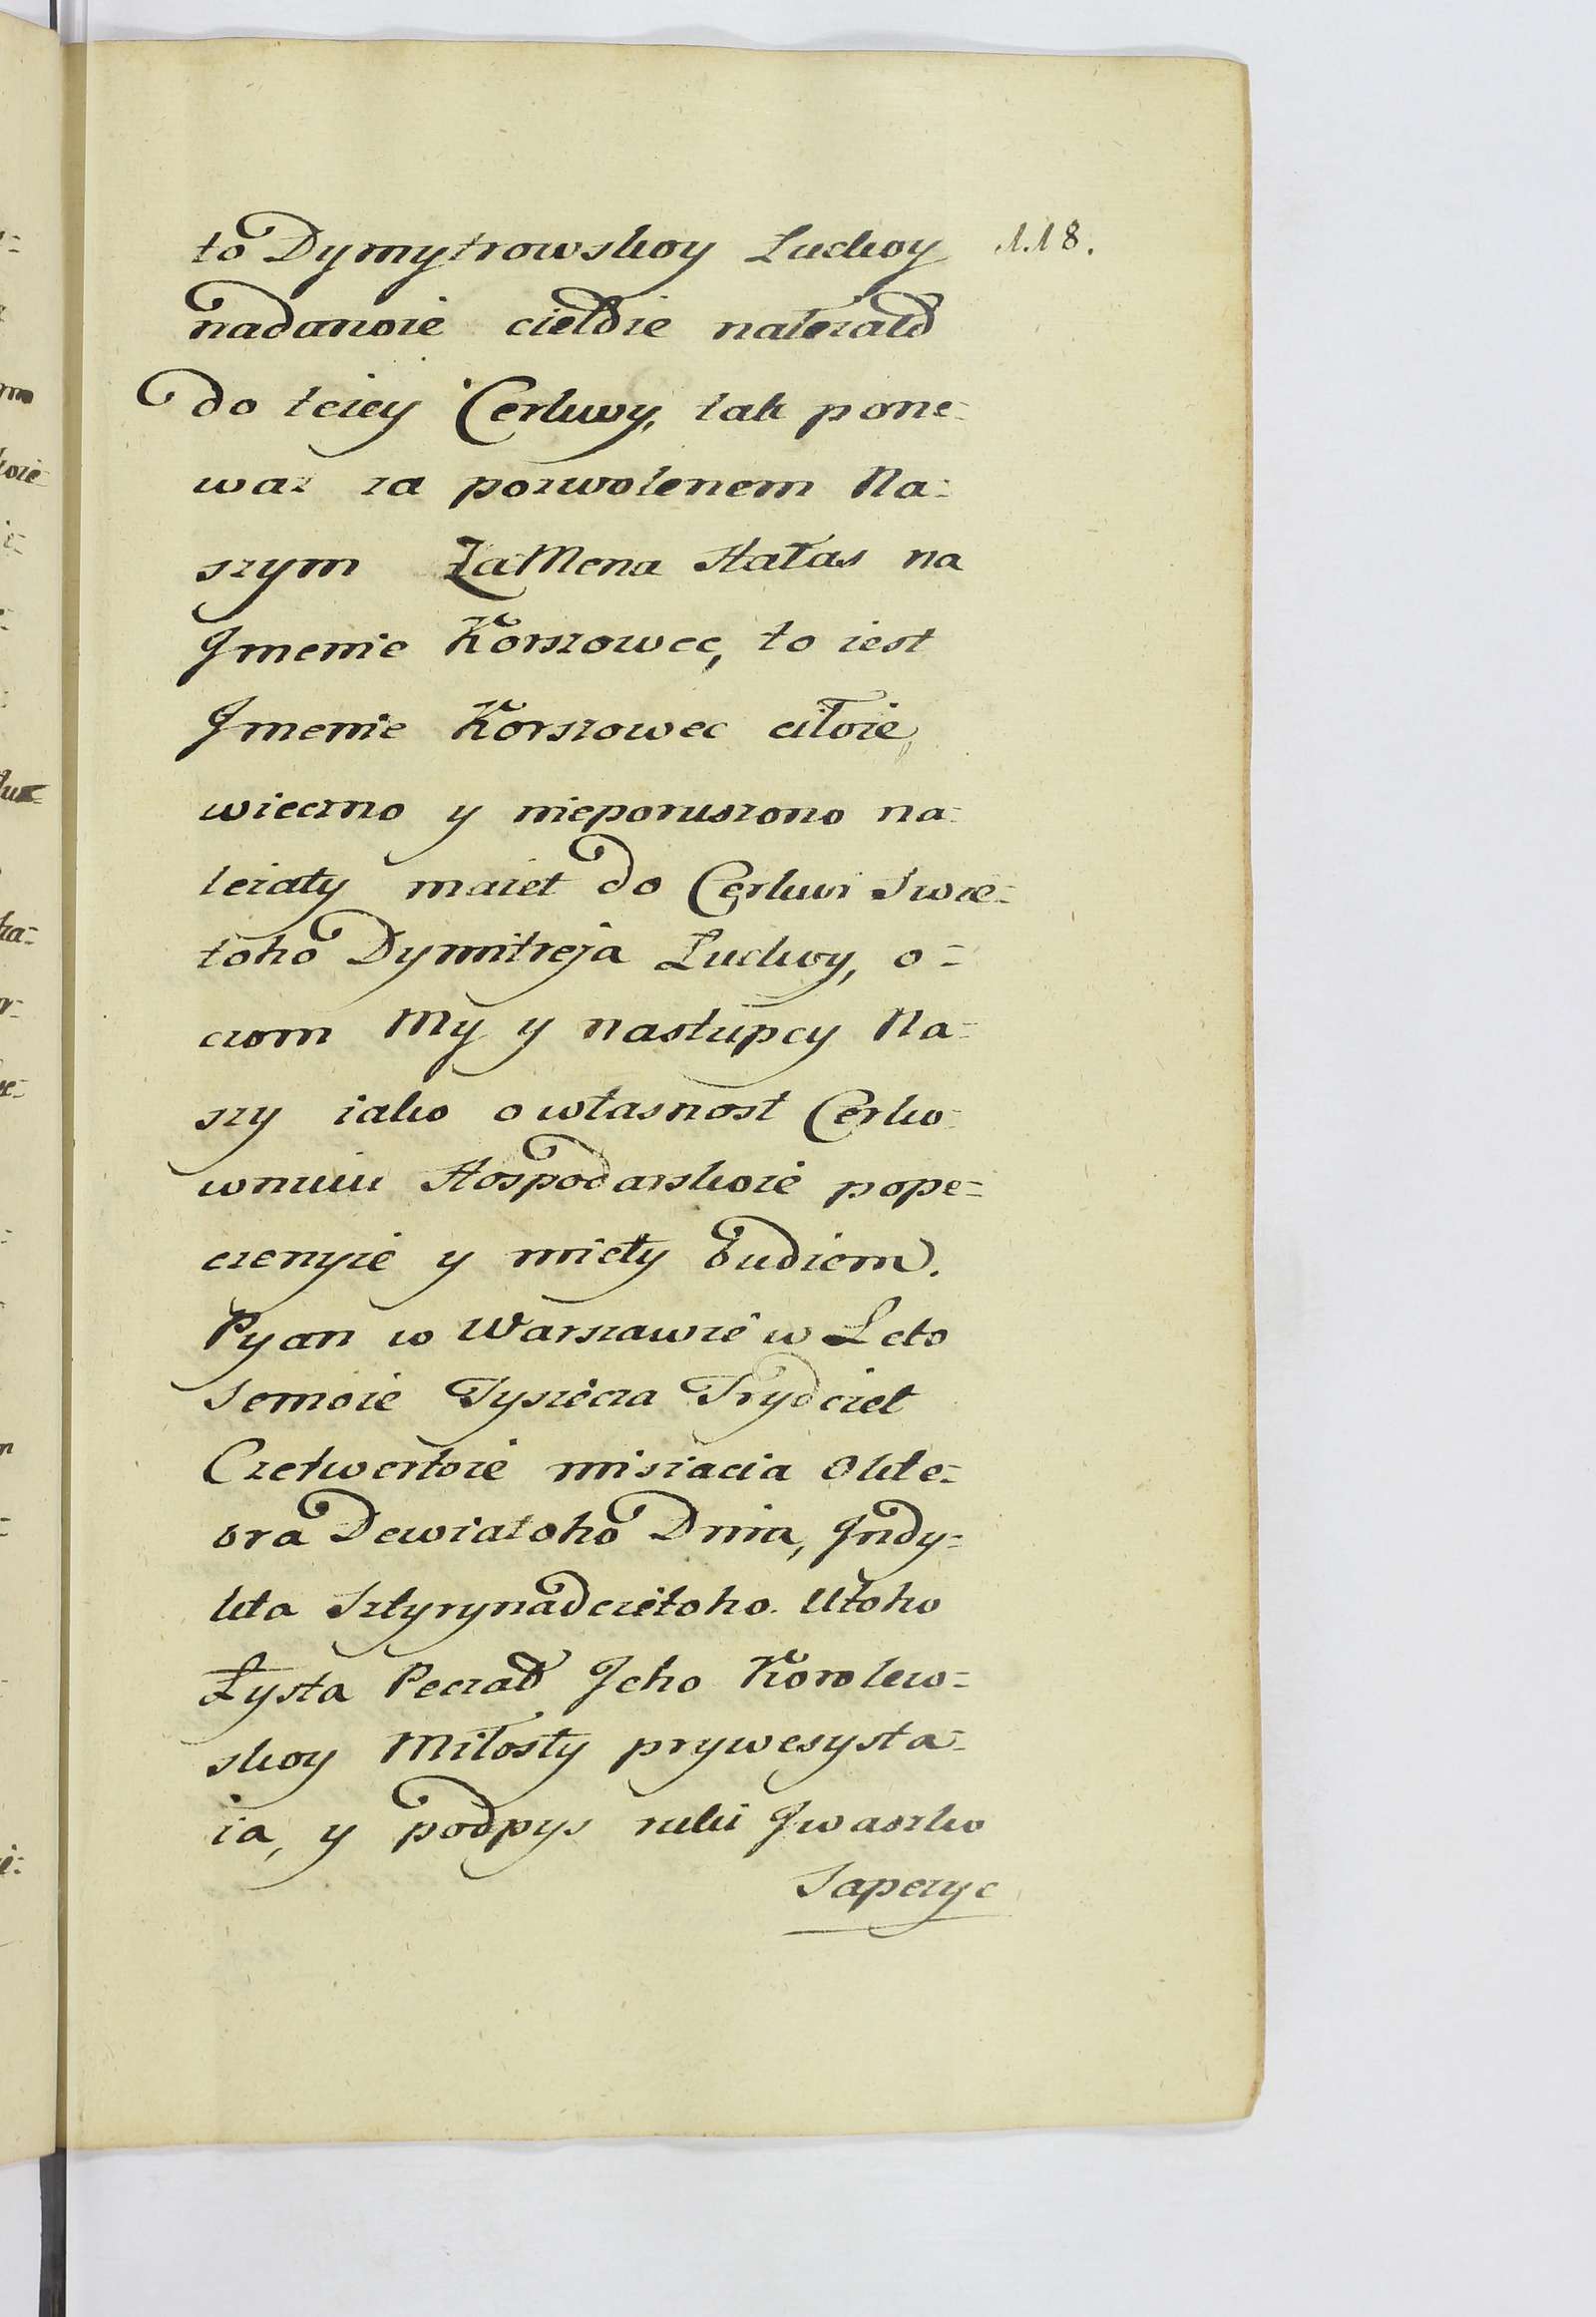 to Dymytrowskoy Luckoy 118.
nadanoie cieldie належald
do teiey Cerkwy, tak pone=
waż za pozwolenem Na=
szym ZaMena stałas na
Jmenie Korszowec, to iest
Jmenie Korszowec ciłoie,
wieczno y nieporuszono na=
leżaty maiet do Cerkwi Swie=
toho Dymitreja Luckoy, o=
czom My y nastupcy Na=
szy iako o własnost Cerko=
wnuiu Hospodarskoie pope=
czenyie y miety budiem.
Pyan w Warszawie w Leto
Semoie Tysiecza Trydciet
Czetwertoie misiacia Okte=
bra Dewiatoho Dnia, Jndy=
kta Sztyrynadcietoho. U toho
Łysta Peczad Jeho Korolew=
skoy Miłosty prywesysta=
ia, y podpys ruki Jwaszko
Sapezyc